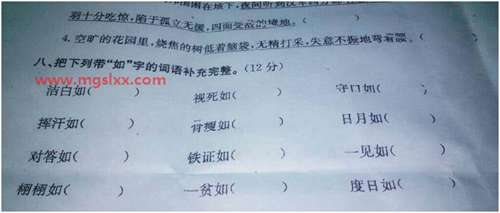 围困在垓下，夜间听到汉军四
十分吃惊，陷于孤立无援，四面受敌的境地。(    )
4. 空旷的花园里，烧焦的树低着脑袋，无精打采，失意不振地弯着腰。(
八、把下列带“如”字的词语补充完整。(12分)
www.mgslxx.com
洁白如(    ) 视死如(    ) 守口如(    )
挥汗如(    ) 骨瘦如(    ) 日月如(    )
对答如(    ) 铁证如(    ) 一见如(    )
栩栩如(    ) 一贫如(    ) 度日如(    )